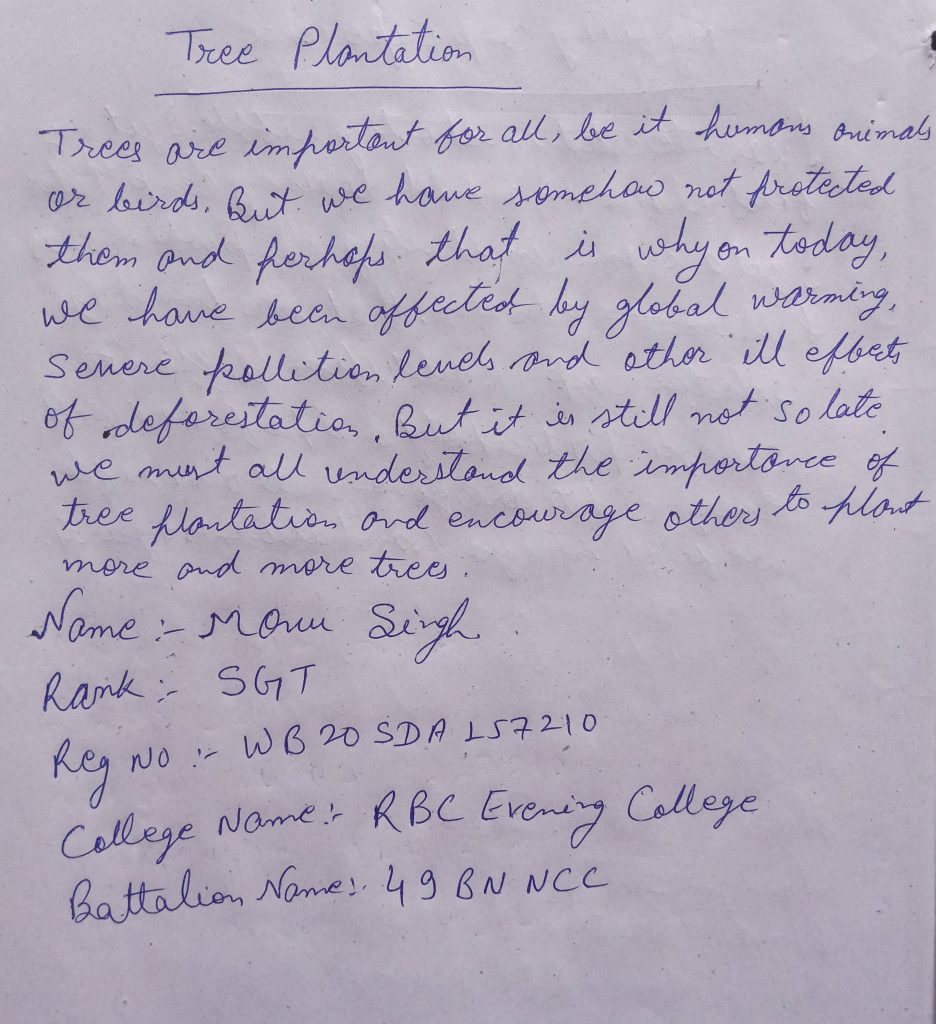 Tree Plantation
Trees are important for all, be it humans animals
or birds. But we have somehow not protected
them and perhaps that is why on today,
we have been affected by global warming,
Severe pollition levels and other ill effects
of deforestation. But it is still not so late
we must all understand the importance of
tree plantation and encourage others to plant
more and more trees.
Name :- Monu Singh
Rank :- SGT
Reg No :- WB 20 SDA 157210
College Name :- RBC Evening College
Battalion Name :- 49 BN NCC